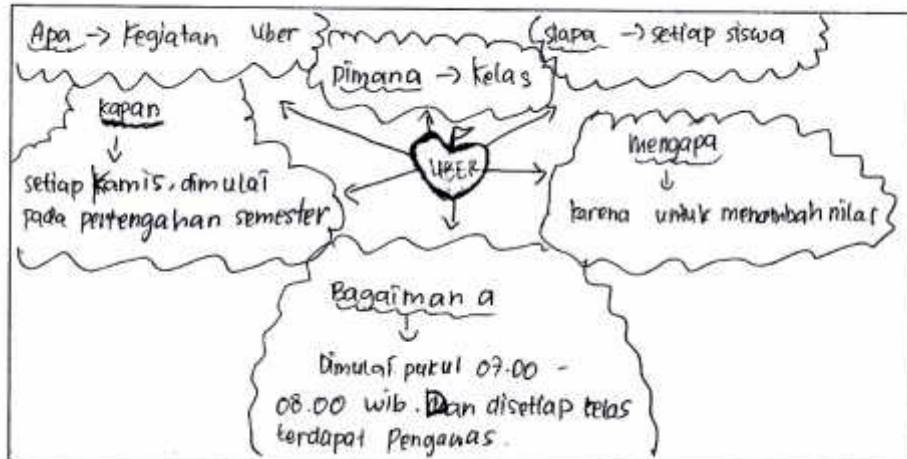 Apa → Kegiatan Uber
Dimana → Kelas
Siapa → setiap siswa
kapan
setiap Kamis, dimulai
pada pertengahan semester
UBER
mengapa
karena untuk menambah nilai
Bagaimana
Dimulai pukul 07.00 -
08.00 wib. Dan disetiap kelas
terdapat Pengawas.